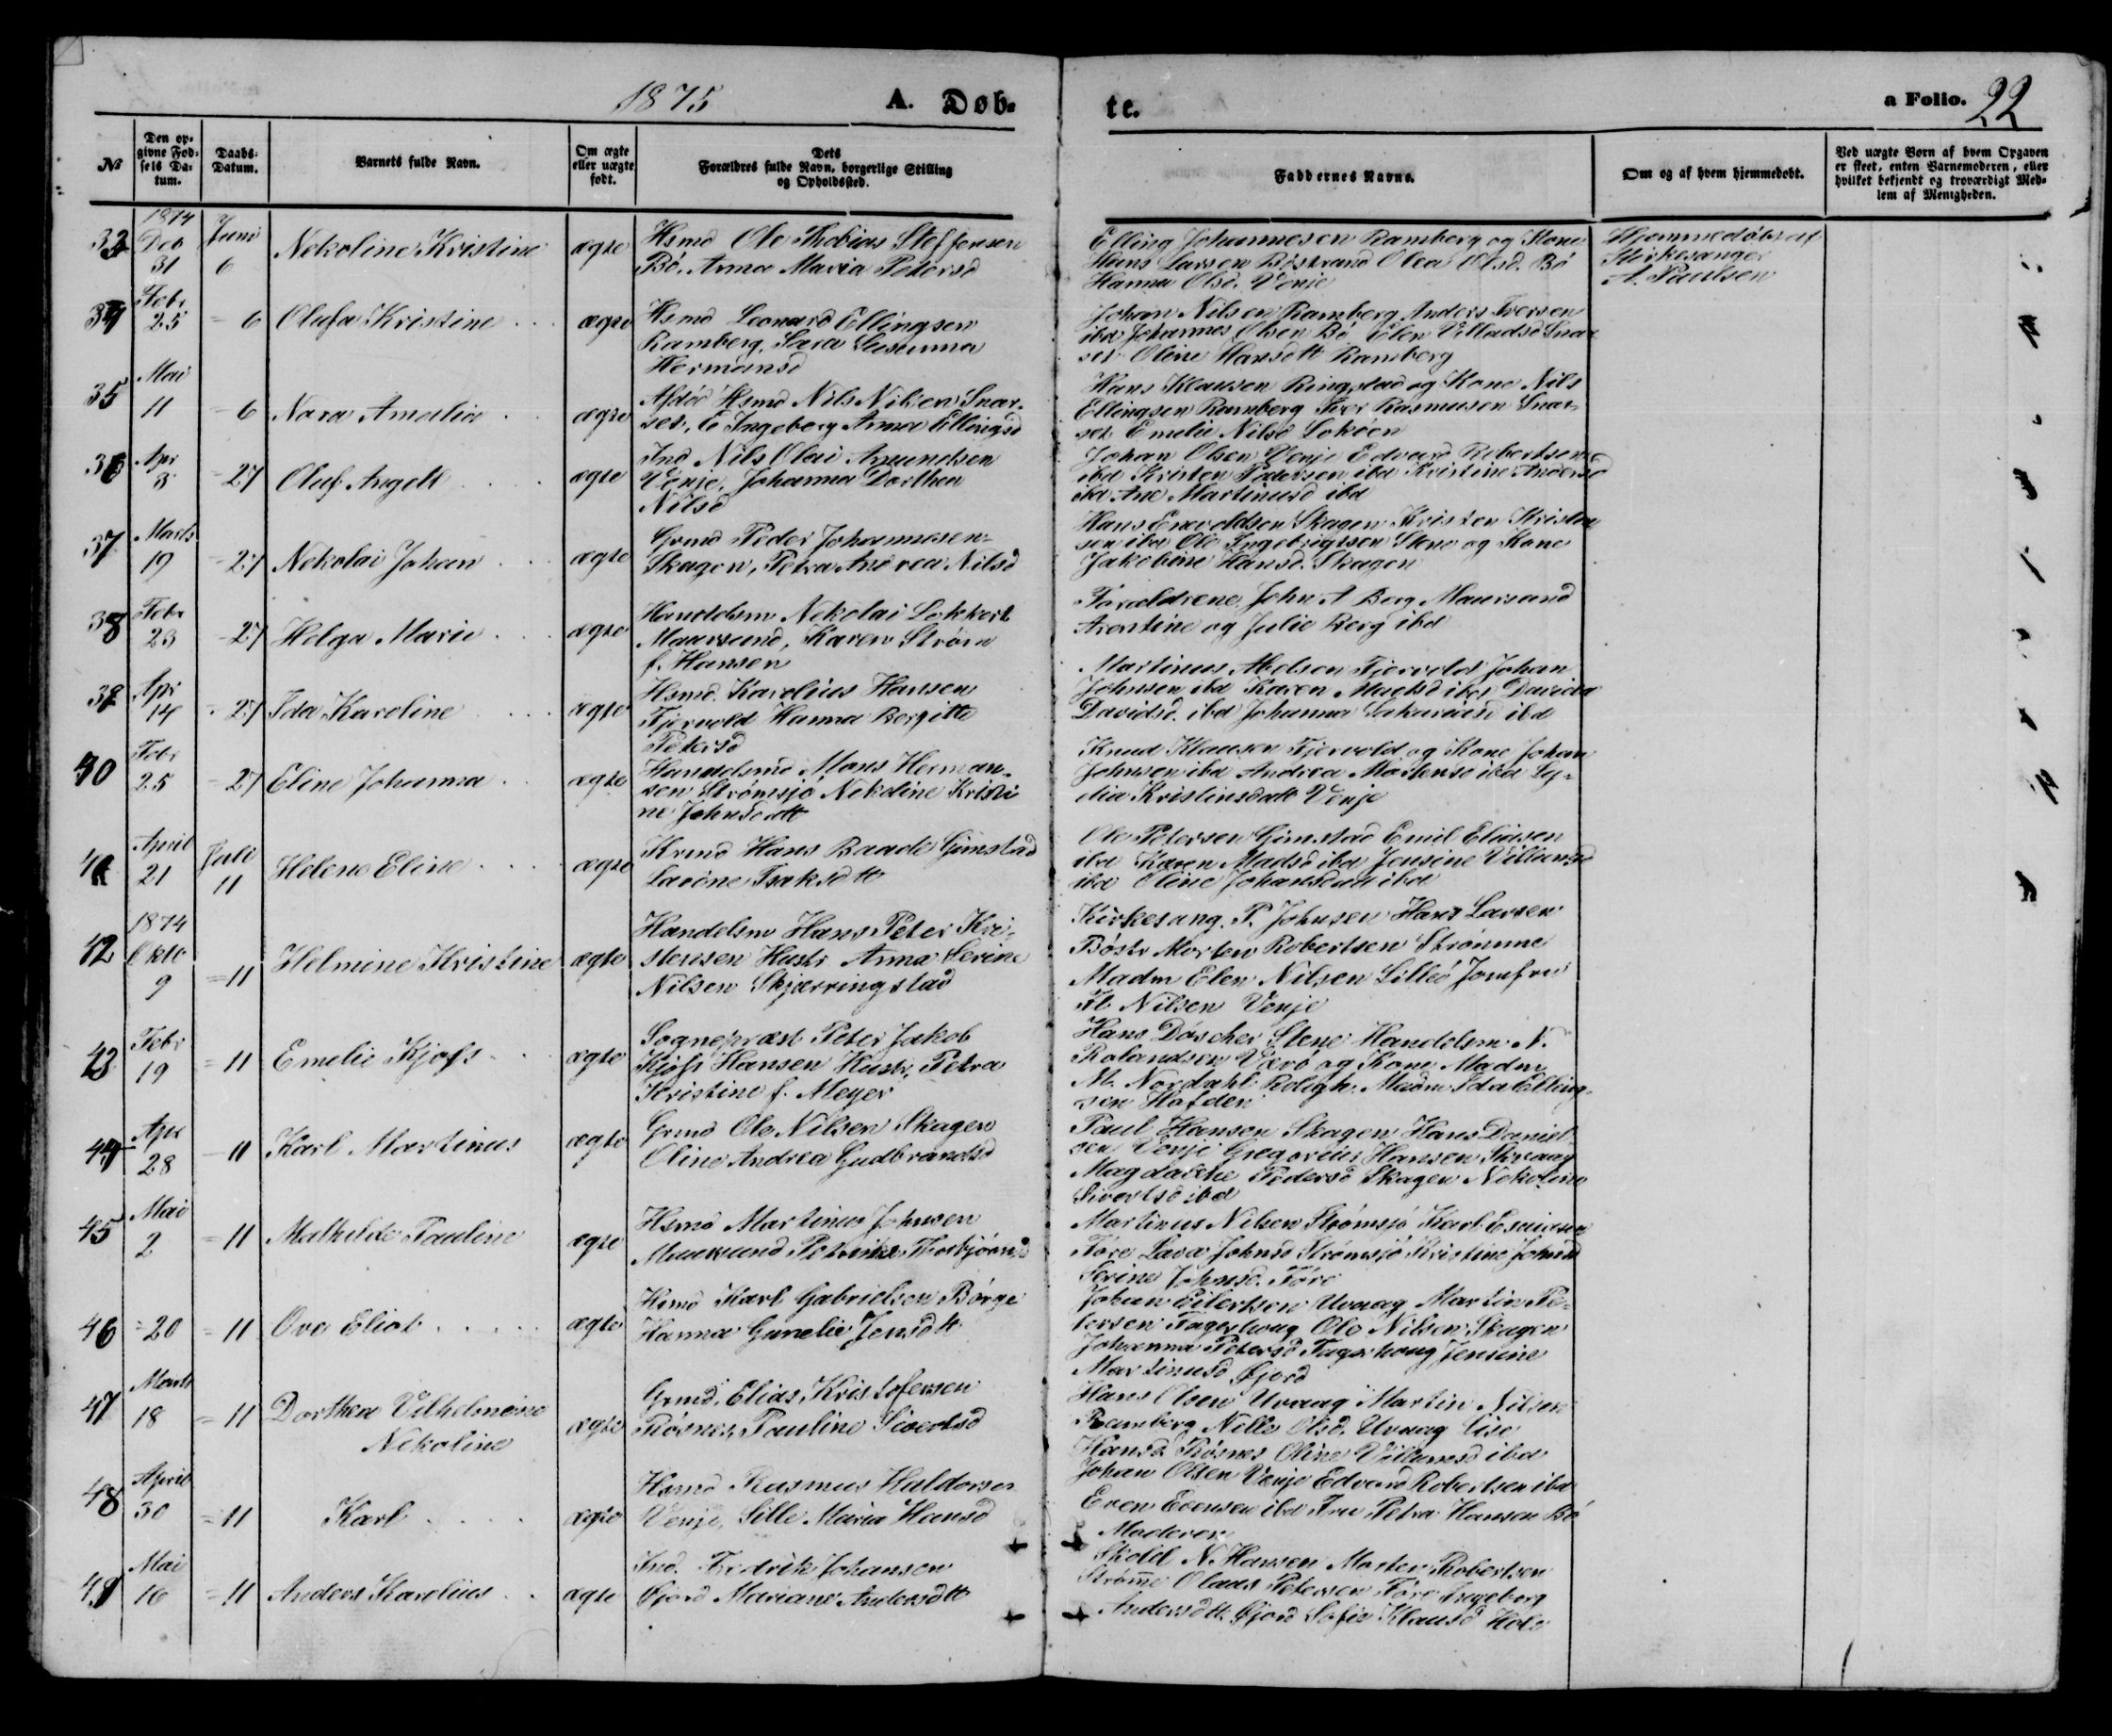 1875 A. Døb-
te. a Folio. 22
No
Den op-
givne Fød-
sels Da-
tum.
Daabs-
Datum.
Barnets fulde Navn.
Om ægte
eller uægte
født.
Dets
Forældres fulde Navn, borgerlige Stilling
og Opholdssted.
Faddernes Navne.
Om og af hvem hjemmedøbt.
Ved uægte Børn af hvem Opgaven
er skeet, enten Barnemoderen, eller
hvilket bekjendt og troværdigt Med-
lem af Menigheden.
1874
Deb 31 Juni 6 Nekoline Kristine ægte
Hsmd Ole Thobias Steffensen
Bø, Anna Maria Petersd
Elling Johannesen Ramberg og Kone
Hans Larsen Bøstrand Olea Olsd. Bø
Hanna Olsd. Venje
Hjemmedøbt af
Kirkesanger
A. Paulsen
34 Febr 25 = 6 Olufa Kristine ægte
Hsmd Leonard Ellingsen
Ramberg, Sara Susanna
Hermansd
Johan Nilsen Ramberg Anders Iversen
ibd Johannes Olsen Bø Elen Villadsd Snar
set Oline Hansdtt Ramberg
35 Mai 11 = 6 Nara Amalia ægte
Afdød Hsmd Nils Nilsen Snar-
set, E Ingeborg Anna Ellingsd
Hans Klausen Ringstad og Kone Nils
Ellingsen Ramberg Iver Rasmusen Snar-
set Emelie Nilsd
36 Apr 3 = 27 Oluf Angell ægte
Ind Nils Olai Amundsen
Venje, Johanna Dorthea
Nilsd
Johan Olsen Venje Edvard Robertsen
ibd Kristen Pedersen ibd Kristine Andersd
ibd Ane Martinusd ibd
37 Marts 19 = 27 Nekolai Johan ægte
Grmd Peder Johannesen
Skagen, Petra Andrea Nilsd
Hans Enevoldsen Skagen Kristen Kristen
sen ibd Ole Ingebrigtsen Stene og Kone
Jakobine Hansd. Skagen
38 Febr 23 = 27 Helga Marie ægte
Handelsm Nekolai Lokkert
Maursund, Karen Strøm
f. Hansen
Forældrene John A Berg Maursund
Arentine og Julie Berg ibd
Apr 14 = 27 Ida Karoline ægte
Hsmd. Karolius Hansen
Fjervold Hanna Bergitte
Petersd
Martinus Abelsen Fjervold Johan
Johnsen ibd Karen ibd Davida
Davidsd. ibd Johanna Sakariasd ibd
40 Febr 25 = 27 Eline Johanna ægte
Handelsmd Mons Herman-
sen Strømsjø Nekoline Kristi
ne Johnsdatt
Knud Klausen Fjervold og Kone Johan
Johnsen ibd Andrea Mortensd ibd Ly-
dia Kristinsdatt Venje
April 21 Juli 11 Helene Eline ægte
Hans Baade Gimstad
Lavine Isaksdtt
Ole Petersen Gimstad Emil Eliasen
ibd Karen Madsd ibd Jensine Villumsd
ibd Oline Johansdatt ibd
42 1874 Okto 9 = 11 Helmine Kristine ægte
Handelsm Hans Peter Kri-
stensen Hustr Anna Serine
Nilsen Skjærringstad
Kirkesang. P. Johnsen Hans Larsen
Bøstr Morten Robertsen Strømme
Madm Elen Nilsen Lilleø Jomfru
Nilsen Venje
43 Febr 19 = 11 Emelie Kjofs ægte
Sogneprest Peter Jakob
Kjofs Hansen Hustr, Petra
Kristine f. Meyer
Hans Døscher Stene Handelsm N.
Rolandsen Værø og Kone Madm
M. Nordahl Madm Ida Elling-
sen
44 Apr 28 = 11 Karl Martinus ægte
Grmd Ole Nilsen Skagen
Oline Andrea Gudbrandsd
Paul Hansen Skagen Hans Daniel
sen Venje Gregorius Hansen
Magdalehe Pedersd Skagen Nekoline
Sivertsd ibd
45 Mai 2 = 11 Mathilde Pauline ægte
Hsmd Martinus Johnsen
Petrikke
Martinus Nilsen Strømsjø Karl Esaiasen
Føre Lava Johnsd Strømsjø Kristine Johnsd
Serine Johnsd. Føre
46 = 20 = 11 Ove Eliot ægte
Hsmd Karl Gabrielsen Børge
Hanna Jensdtt
Johan Eilertsen Uvaag Martin Pe-
tersen Fagerhoug Ole Nilsen Skagen
Johanna Petersd Fagerhoug Jensine
Martinusd Gjord
47 Marts 18 = 11 Dorthea Vilhelmine
Nekoline ægte
Grmd. Elias Kristofersen
Røsnes, Pauline Sivertsd
Hans Olsen Uvaag Martin Nilsen
Ramberg Nille Olsd. Uvaag Lise
Hansd. Røsnes Oline Villumsd ibd
48 April 30 = 11 Karl ægte
Hsmd Rasmus Haldorsen
Venje, Sille Maria Hansd
Johan Olsen Venje Edvard Robertsen ibd
Even Evensen ibd Fru Petra Hansen Bø
Moderen
Mai 16 = 11 Anders Karolius ægte
Ind. Fredrik Johansen
Gjord Mariane Andersdtt
Skoleł N. Hansen Morten Robertsen
Strøme Olaus Petersen Føre Ingeborg
Andersdtt. Gjord Sofie Klausd Hole